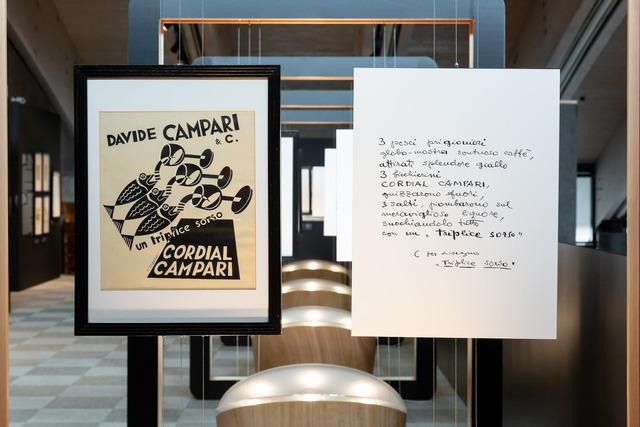 DAVIDE CAMPARI
& C.
un triplice sorso
CORDIAL
CAMPARI
3 pesci prigionieri
globo-mostra sontuoso caffè,
attirati splendore giallo
3 bicchierini
CORDIAL CAMPARI,
guizzarono fuori,
3 salti, piombarono sul
meraviglioso liquore,
succhiandolo tutto
con un „triplice sorso"
( per disegno
„Triplice sorso".